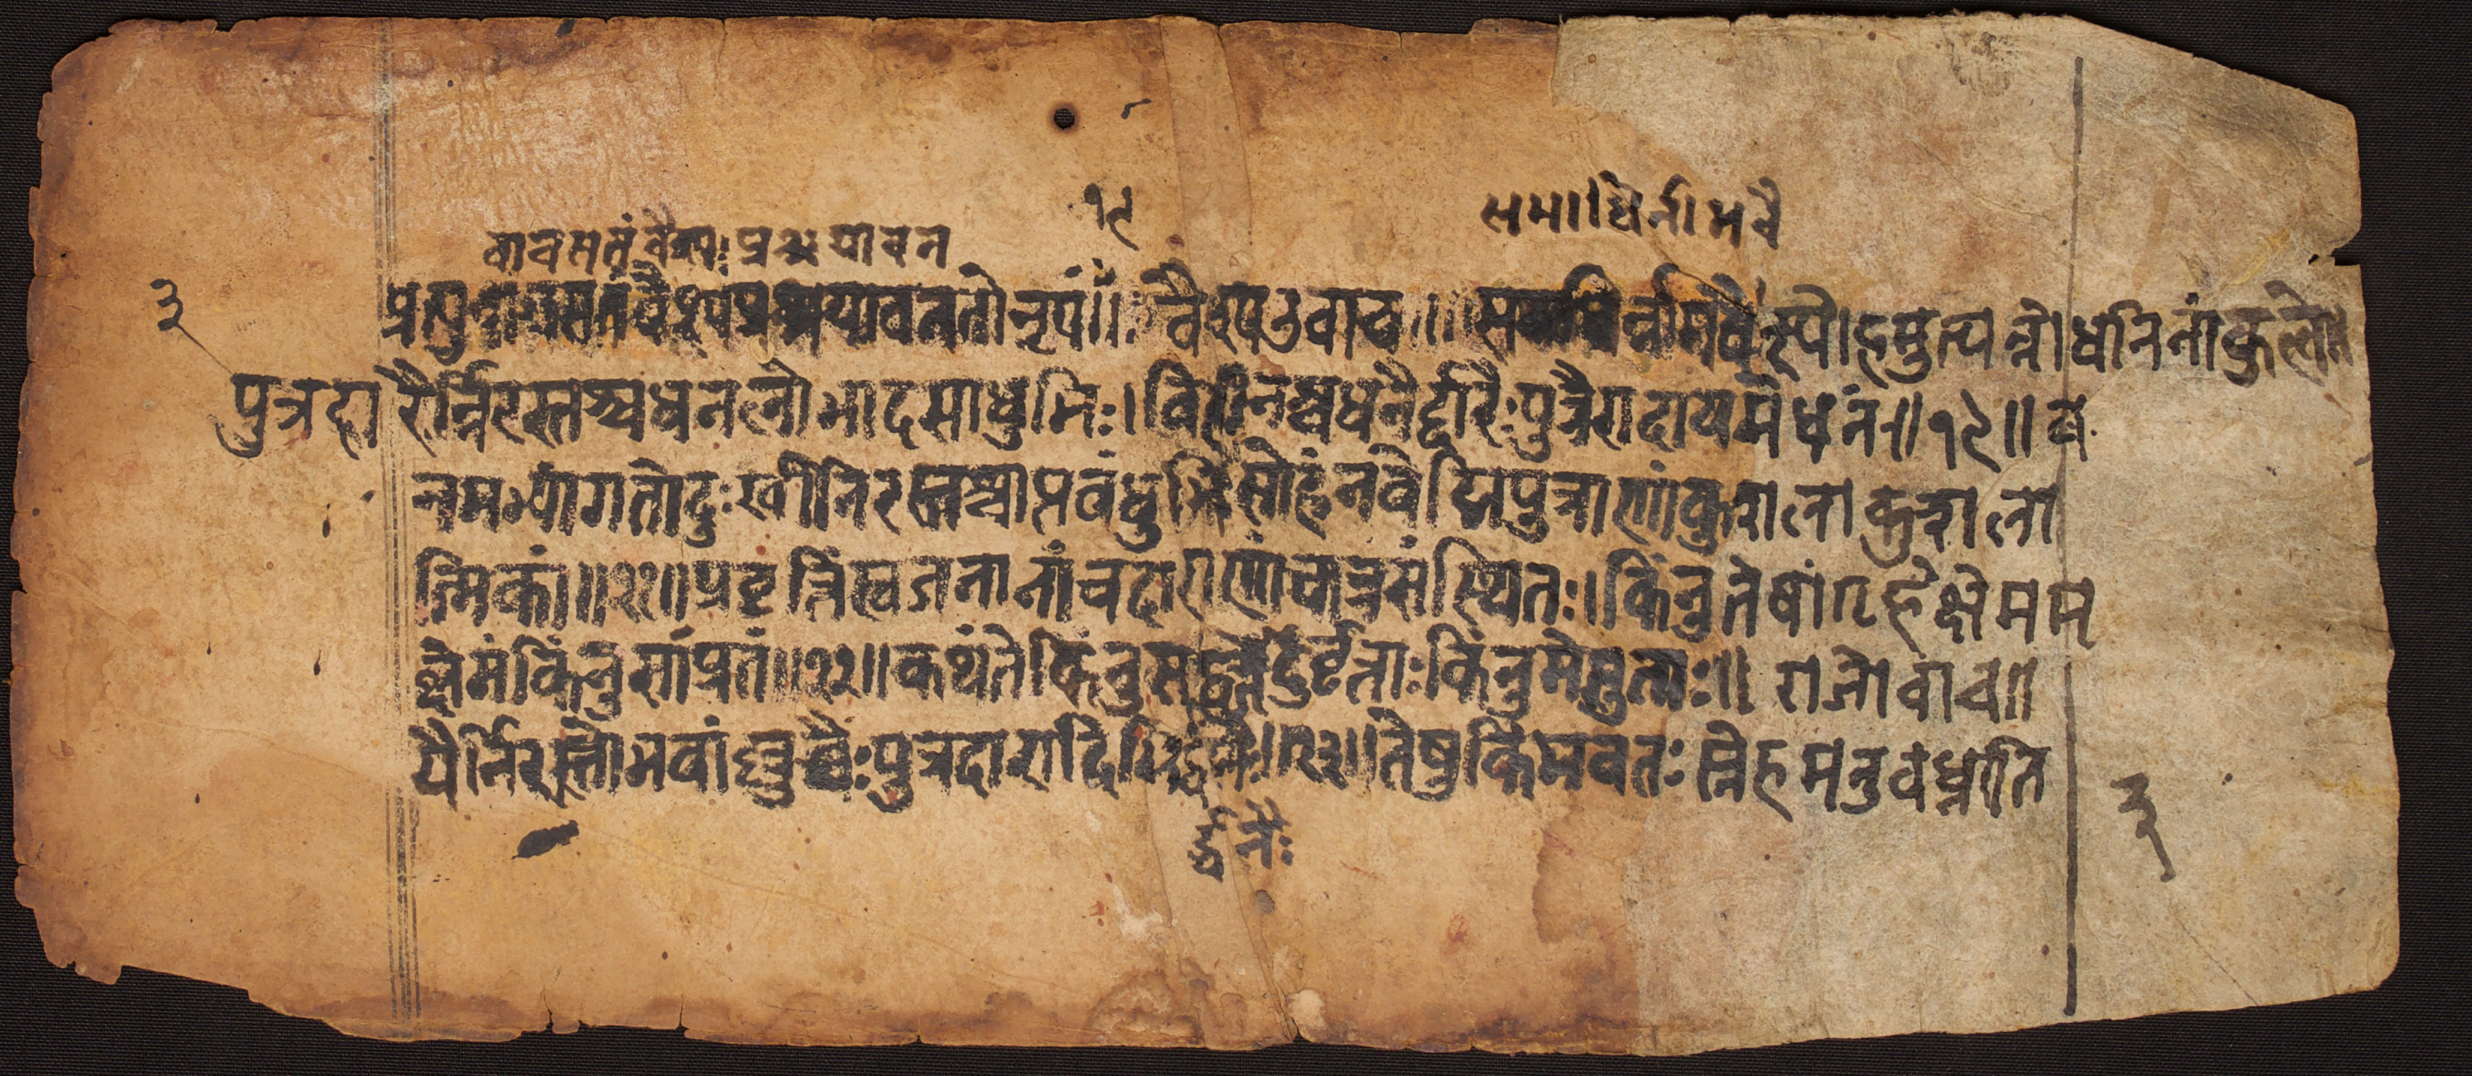 १९
समाधिर्नामवै
वाचसतंवैश्यःप्रश्रयावन
३
प्रत्युवाचसतंवैश्यप्रश्रयावनतोनृपं॥ वैश्यउवाच॥ समाधिर्न्नामवैश्योहमुत्पन्नोधनिनांकुले॥
पुत्रदारैर्न्निरस्तश्चधनलोभादसाधुभिः।विहीनश्चधनैर्द्दारैःपुत्रैरादायमेधनं॥१९॥व
नमभ्यागतोदुःखीनिरस्तश्चाप्तबंधुभिःसोहंनवेद्मिपुत्राणांकुशलाकुशला
त्मिकां॥२१॥प्रवृत्तिंस्वजनानांचदाराणांचात्रसंस्थितः।किंनुतेषांगृहेक्षेमम
क्षेमंकिंनुसांप्रतं॥२२॥कथंतेकिंनुसद्वृत्तादुर्वृत्ताःकिंनुमेसुताः॥ राजोवाच॥
यैर्निरस्तोभवांल्लुब्धैःपुत्रदारादिभिर्द्धनैः॥२३॥तेषुकिंभवतःस्नेहमनुबध्नाति
र्द्धनैः
३